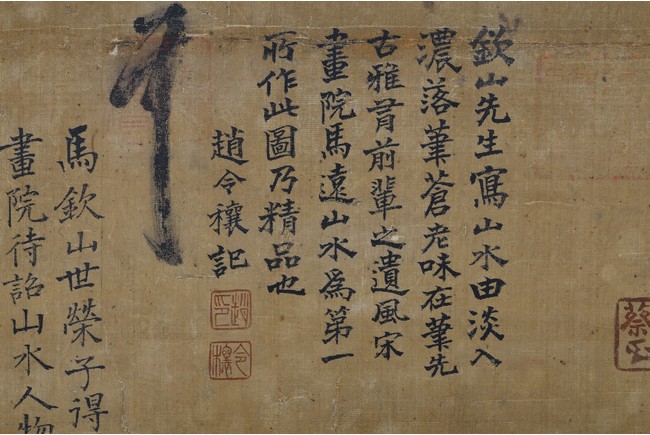 蔡
欽山先生寫山水由淡入
濃落筆蒼老味在筆先
古雅前輩之遺風宋
畫院馬遠山水為第一
所作此圖乃精品也
趙令穰記
趙印
令穰
馬欽山世榮子得
畫院待詔山水人物